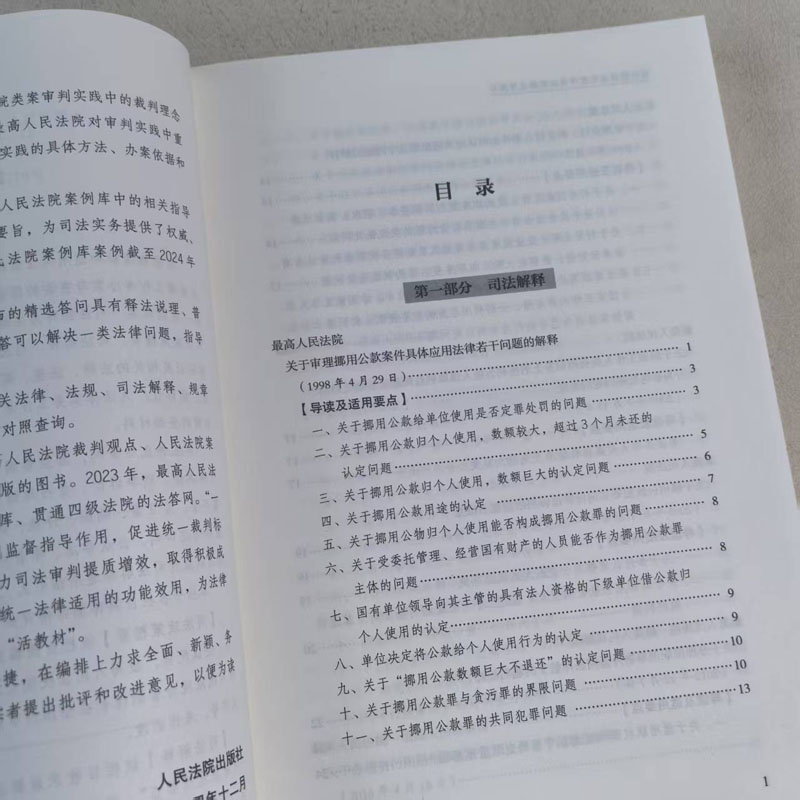 院类案审判实践中的裁判理念
最高人民法院对审判实践中重
实践的具体方法、办案依据和
人民法院案例库中的相关指导
要旨，为司法实务提供了权威、
法院案例库案例截至2024年
的精选答问具有释法说理、普
答可以解决一类法律问题，指导
关法律、法规、司法解释、规章
对照查询。
高人民法院裁判观点、人民法院案
版的图书。2023年，最高人民法
库、贯通四级法院的法答网。“一
监督指导作用，促进统一裁判标
力司法审判提质增效，取得积极成
统一法律适用的功能效用，为法律
“活教材”。
捷，在编排上力求全面、新颖、务
者提出批评和改进意见，以便为读
人民法院出版社
年十二月
目 录
第一部分 司法解释
最高人民法院
关于审理挪用公款案件具体应用法律若干问题的解释
（1998年4月29日）…… 1
【导读及适用要点】…… 3
一、关于挪用公款给单位使用是否定罪处罚的问题…… 3
二、关于挪用公款归个人使用，数额较大，超过3个月未还的
认定问题…… 5
三、关于挪用公款归个人使用，数额巨大的认定问题…… 6
四、关于挪用公款用途的认定…… 7
五、关于挪用公物归个人使用能否构成挪用公款罪的问题…… 8
六、关于受委托管理、经营国有财产的人员能否作为挪用公款罪
主体的问题…… 8
七、国有单位领导向其主管的具有法人资格的下级单位借公款归
个人使用的认定…… 9
八、单位决定将公款给个人使用行为的认定…… 9
九、关于“挪用公款数额巨大不退还”的认定问题…… 10
十、关于挪用公款罪与贪污罪的界限问题…… 10
十一、关于挪用公款罪的共同犯罪问题…… 13
1